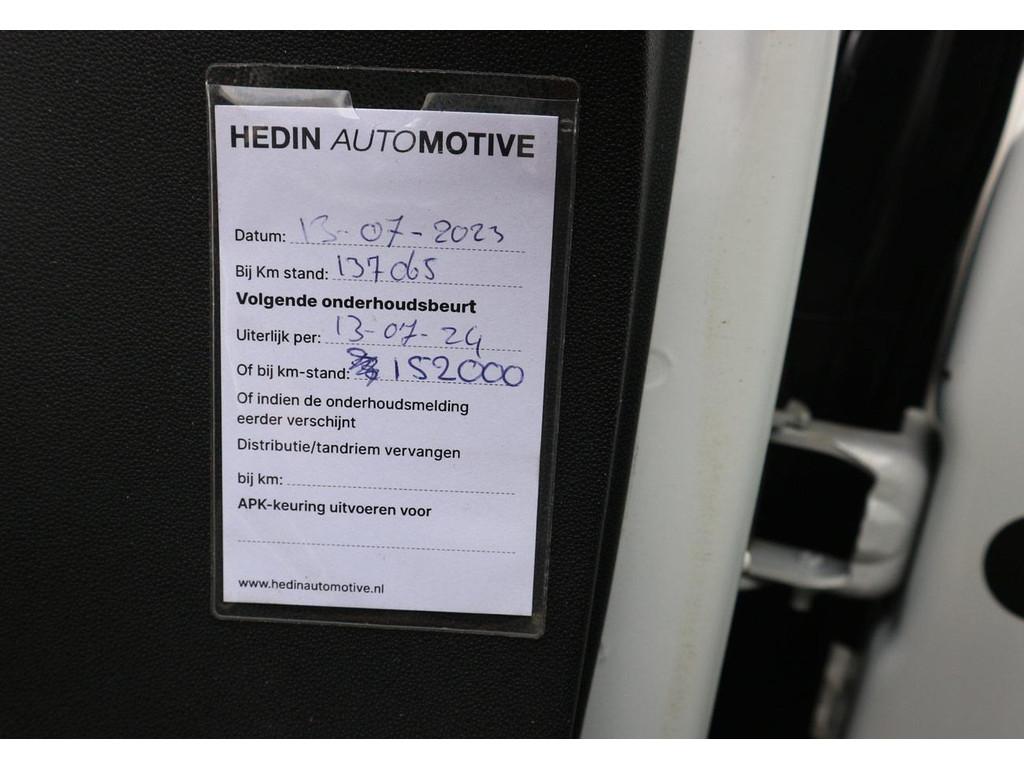 HEDIN AUTOMOTIVE
Datum: 13-07-2023
Bij Km stand: 137065
Volgende onderhoudsbeurt
Uiterlijk per: 13-07-24
Of bij km-stand: 152000
Of indien de onderhoudsmelding
eerder verschijnt
Distributie/tandriem vervangen
bij km:
APK-keuring uitvoeren voor
www.hedinautomotive.nl